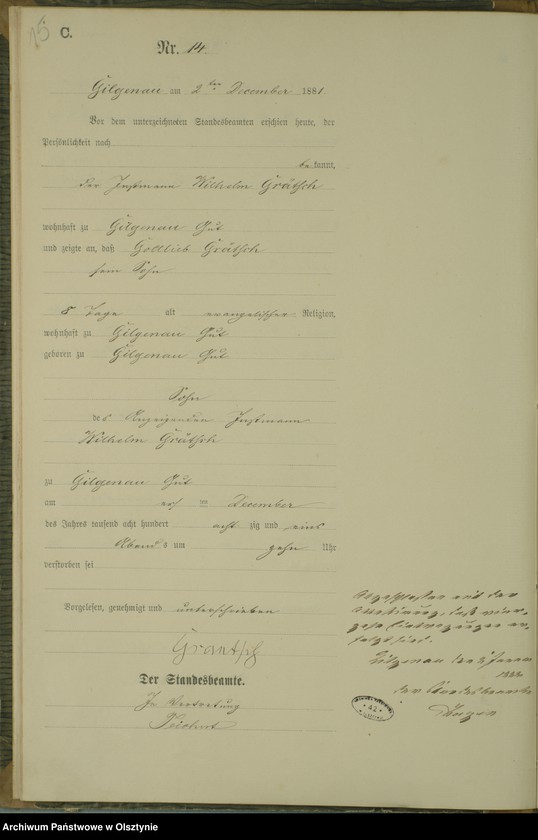 15
C.
Nr. 14.
Gilgenau am 2ten December 1881.
Vor dem unterzeichneten Standesbeamten erschien heute, der
Persönlichkeit nach
bekannt,
der Instmann Wilhelm Grätsch
wohnhaft zu Gilgenau Gut
und zeigte an, daß Gottlieb Grätsch
sein Sohn
8 Tage alt evangelischer Religion,
wohnhaft zu Gilgenau Gut
geboren zu Gilgenau Gut
Sohn
des Anzeigenden Instmann
Wilhelm Grätsch
zu Gilgenau Gut
am December
des Jahres tausend acht hundert achtzig und eins
Abends um zehn Uhr
verstorben sei
Vorgelesen, genehmigt und unterschrieben
Graetsch
Der Standesbeamte.
In Vertretung
Abgeschlossen mit der
Gilgenau den
der Standesbeamte
42
Archiwum Państwowe w Olsztynie